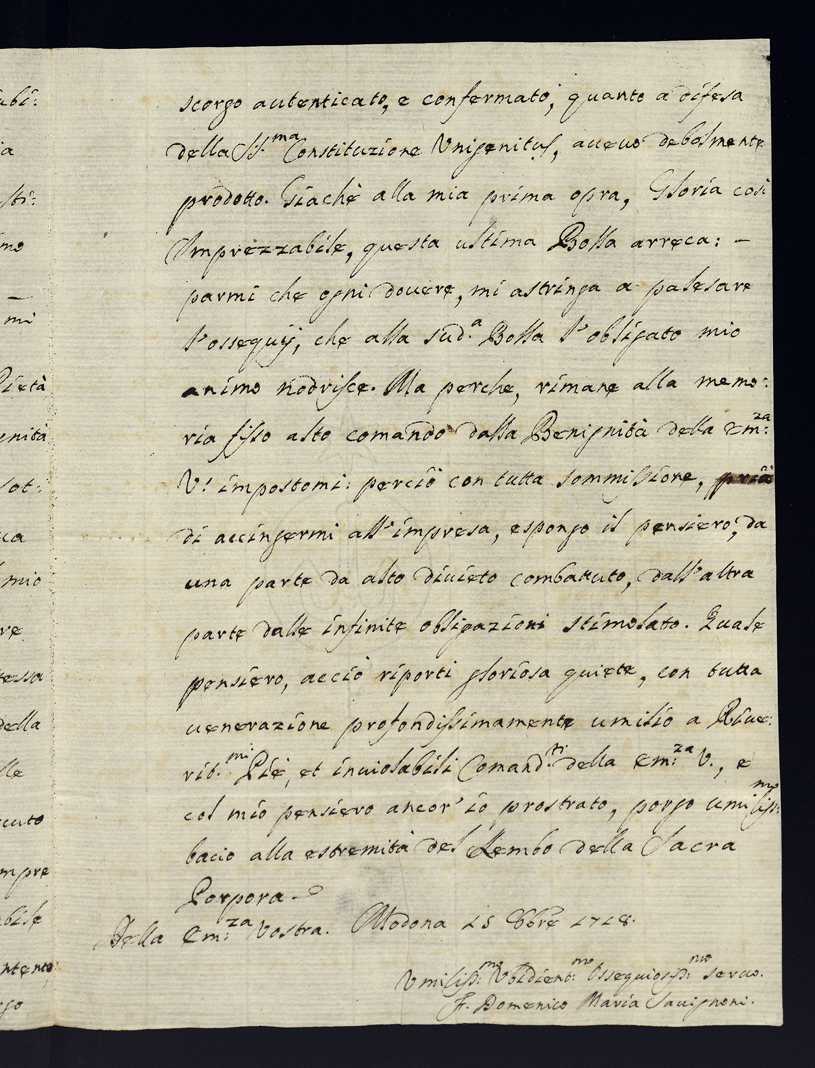 scorgo autenticato, e confermato, quanto a difesa
della SS.ma Constituzione Unigenitus, aueuo debolmente
prodotto. Giachè alla mia prima opra, Gloria così
Imprezzabile, questa ultima Bolla arreca: –
parmi che ogni douere, mi astringa a palesare
l'ossequij, che alla sud.a Bolla l'obligato mio
animo nodrisce. Ma perche, rimane alla memo:
ria fisso alto comando dalla Benignità della Em:za
V. impostomi: perciò con tutta sommissione,
di accingermi all'impresa, espongo il pensiero, da
una parte da alto diuieto combattuto, dall'altra
parte dalle infinite obligazioni stimolato. Quale
pensiero, acciò riporti gloriosa quiete, con tutta
uenerazione profondissimamente umilio a Riue:
rit:mi Piè, et inuiolabili Comand:ti della Em:za V., e
col mio pensiero ancor'io prostrato, porgo umiliss:mo
bacio alla estremità del Lembo della Sacra
Porpora.
Della Em:za Vostra. Modona 15 Xbre 1718.
Vmiliss:mo Vbidient:mo Ossequiosiss:mo seruo.
F. Domenico Maria Sauignoni.
ubi:
ia
sti:
mo
–
mi
Pietà
enità
sot:
ca
mio
re
tessa
della
lle
cuto
mpre
bile
ntento
rgo